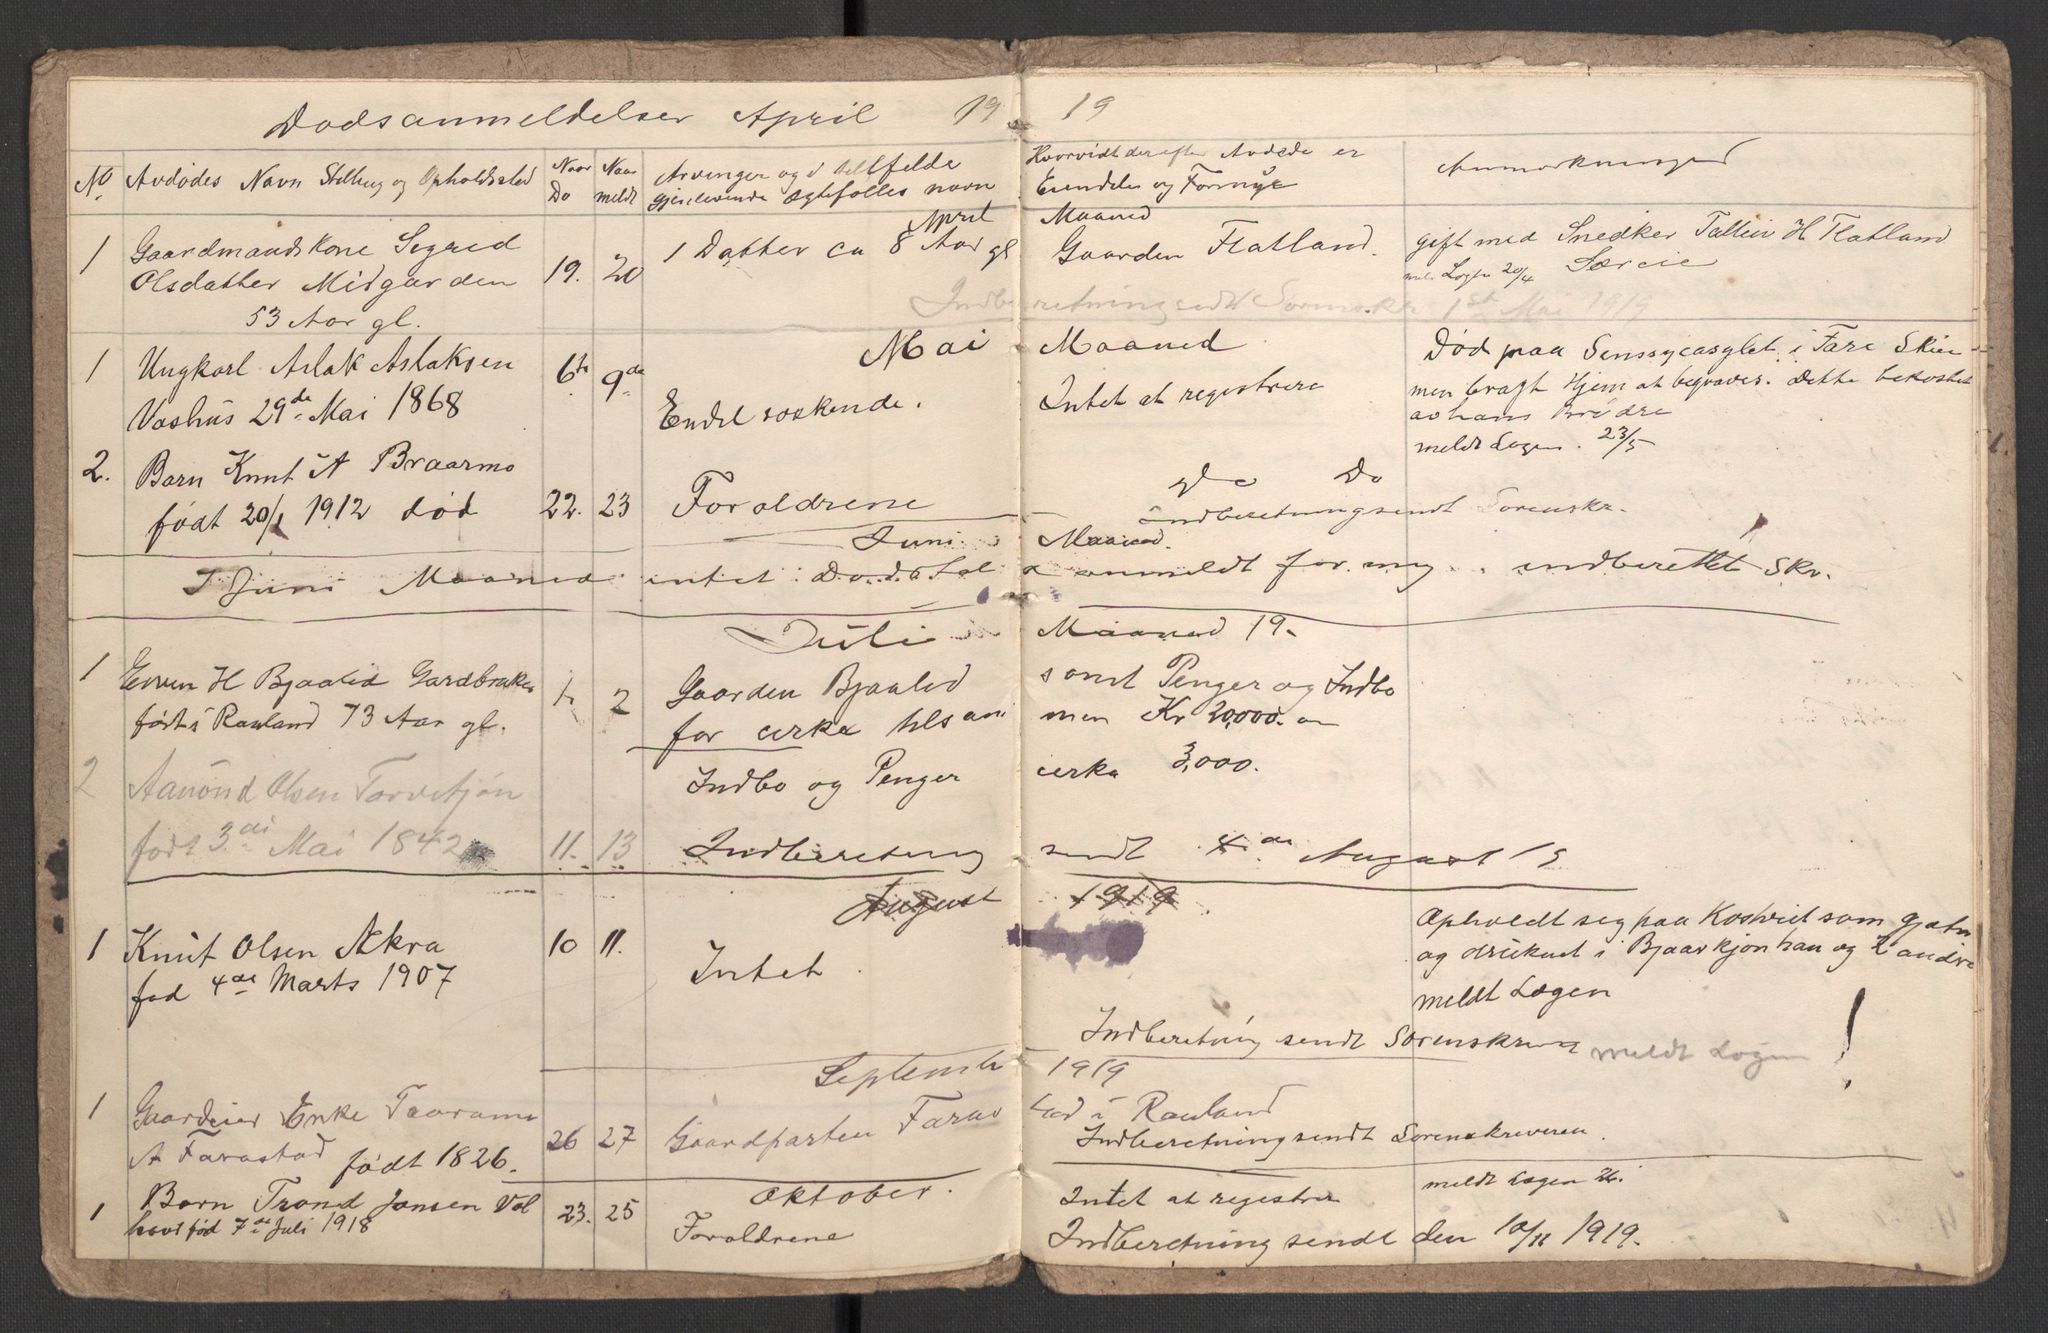 Dødsanmeldelser April 19 19
No Avdødes Navn Stilling og Opholdssted Naar Do Naar meldt Arvinger og i tilfelde gjenlevende Ægtefolles navn Hvorvidt derefter Avdøde er Eiendeler og Formye Anmerkninger
April Maaned
1 Gaardmandskone Sigrid 19. 20 1 Datter ca 8 Aar gl Gaarden Flatland. gift med Snedker Talleiv H Flatland
Olsdatter Midgarden meld Lægen 20/4
53 Aar gl. Indberetning sendt 1st Mai 1919
Mai Maaned
1 Ungkarl Aslak Aslaksen 6te 9de Endel søskende. Intet at registrere Død paa Sinssygasylet i Skien
Vashus 29de Mai 1868 men bragt Hjem at begraves. Dette bekostet
av hans Brødre
meldt Lægen. 23/5
2. Barn Knut A Braarmo 22. 23 Foraldrene Do Do
født 20/1 1912 død Indberetning sendt Sorenskr.
Juni Maaned.
I Juni Maaned intet Dødsfal anmeldt for mig. indberettet Skr.
Juli Maaned 19.
1 Even H Bjaalid Gardbruker 1. 2 Gaarden Bjaalid samt Penger og Indbo
født i Rauland 73 Aar gl. for cirka tilsam men Kr 20,000.
2 Aamund Olsen Torvetjøn Indbo og Penger cirka 3,000.
født 3di Mai 1842 11. 13 Indberetning sendt 4de August 19
August 1919
1 Knut Olsen Akra 10 11. Intet. Opholdt seg paa Kostveit som gjæter
fød 4de Marts 1907 og druknet i Bjaarkjøn han og 2 andre
meldt Lægen
Indberetning sendt Sorenskriver meldt Lægen !
Septembr 1919
1 Gaardeier Enke Taaramo 26 27 Gaardparten Farastad i Rauland
A Farastad født 1826. Indberetning sendt Sorenskriveren.
Oktober. meldt Lægen
1 Barn Trond Jonsen Vol 23. 25 Foraldrene Intet at registrer
hovd fød 7de Juli 1918 Indberetning sendt den 10/11 1919.